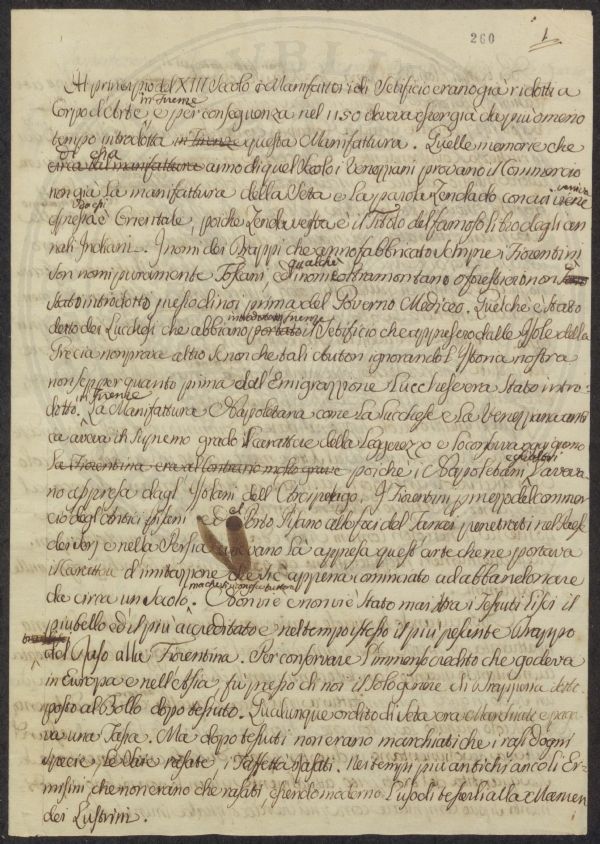 260
1
Al principio del XIII Secolo i Manifattori di Setificio erano già ridotti a
in Firenze
Corpo d'Arte, e per conseguenza nel 1150 doveva esser già da più o meno
tempo introdotta in Firenze questa Manifattura. Quelle memorie che
circa tal manifattura anno di quel Secolo i Veneziani provano il Commercio
non già la manifattura della Seta e la parola Zendado con cui
Drappi
espressa è Orientale, poiche Zendavesta è il titolo del famoso libro degli an
nali Indiani. I nomi dei Drappi che anno fabbricato sempre i Fiorentini
son nomi puramente Toscani, nome oltramontano o forestiero non
stato introdotto presso di noi prima del Governo Mediceo. Quel che è stato
introdotto in Firenze
detto dei Lucchesi che abbiano portato il Setificio che appresero dalle Isole della
Grecia non prova altro se non che tali Autori ignorando l'Istoria nostra
non sepper quanto prima dell'Emigrazione Lucchese era stato intro-
in Firenze
dotto. La Manifattura Napoletana come la Lucchese e la Veneziana anti
ca aveva in supremo grado il carattere della Leggerezza e lo conserva oggi giorno
La Fiorentina era al contrario molto grave poiche i Napoletani l'aveva
no appresa dagl'Isolani dell'Arcipelago. I Fiorentini per mezzo del commer
cio degl'antichi Pisani ed al Porto Pisano alle foci del Tanai penetrati nel Paese
dei e nella Persia avevano là appresa quest'arte che ne portava
il carattere d'imitazione che si è appena cominciato ad abbandonare
da circa un Secolo. Non vi è e non vi è stato mai tra i Tessuti lisci il
più bello ed il più accreditato e nel tempo stesso il più pesante drappo
del Raso alla Fiorentina. Per conservare l'immenso credito che godeva
in Europa e nell'Asia fù presso di noi il solo genere di drapperia sotto
posto al Bollo dopo tessuto. Qualunque ordito di Seta era Marchiato e paga
va una Tassa. Ma dopo tessuti non erano marchiati che i rasi d'ogni
specie, le rasate, i Taffettà rasati. Nei tempi più antichi ancoli Er-
misini che non erano che rasati, essendo moderno l'uso di tesserli alla Manier
dei Lustrini.